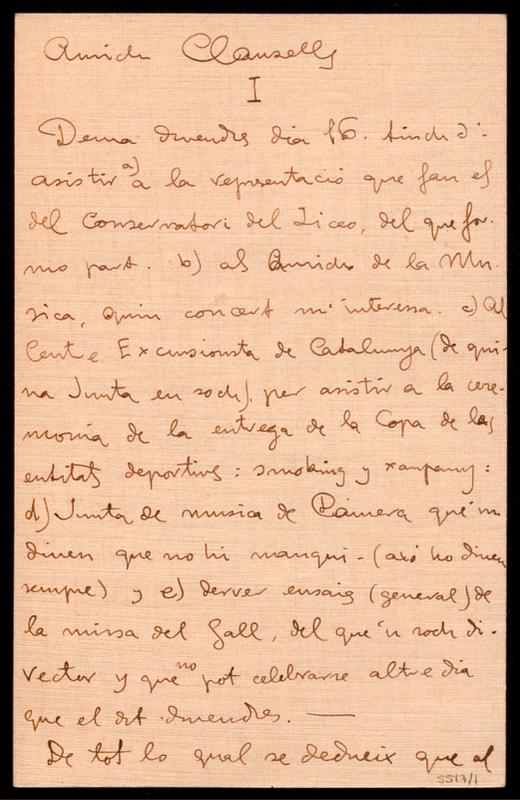 Amich Clausells
I
Dema divendres dia 16. tinch d'-
asistir a) a la representació que fan els
del Conservatori del Liceo, del que for-
mo part. b) als Amichs de la Mu-
sica, quin concert m'interesa. c) Al
Centre Excursionista de Catalunya (de qui-
na Junta en soch), per asistir a la cere-
monia de la entrega de la Copa de las
entitats deportivas: smoking y xampany:
d) Junta de musica de Camera que'm
diuen que no hi manqui - (axó ho diuen
sempre) y e) derrer ensaig (general) de
la missa del Gall, del que'n soch di-
rector y que no pot celebrarse altre dia
que el dit divendres. —
De tot lo qual se dedueix que al
5517/1